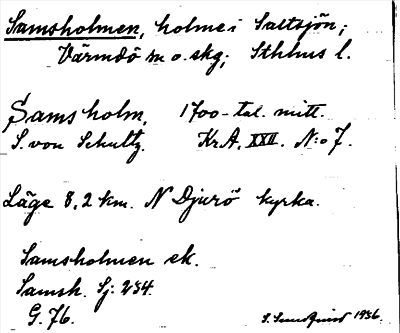 Samsholmen, holme i Saltsjön;
Värmdö sn o. skg; Sthlms l.
Samsholm, 1700-tal. mitt.
S. von Schultz. Kr.A. XXII. N:o 7.
Läge 8,2 km. N Djurö kyrka.
Samsholmen ek.
Samsh. Sj: 234.
G. 76.
S. Sundquist 1936.